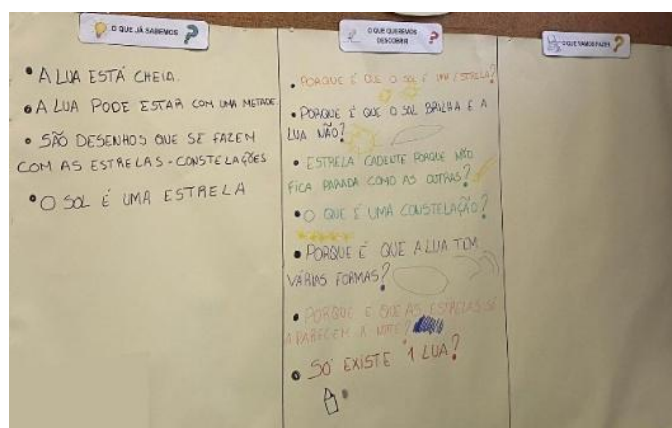 O QUE JÁ SABEMOS
• A LUA ESTÁ CHEIA.
• A LUA PODE ESTAR COM UMA METADE.
• SÃO DESENHOS QUE SE FAZEM
COM AS ESTRELAS - CONSTELAÇÕES
• O SOL É UMA ESTRELA
O QUE QUEREMOS
DESCOBRIR
• PORQUE É QUE O SOL É UMA ESTRELA?
• PORQUE É QUE O SOL BRILHA E A
LUA NÃO?
• ESTRELA CADENTE PORQUE NÃO
FICA PARADA COMO AS OUTRAS?
• O QUE É UMA CONSTELAÇÃO?
• PORQUE É QUE A LUA TEM
VÁRIAS FORMAS?
• PORQUE É QUE AS ESTRELAS SÓ
APARECEM À NOITE?
• SÓ EXISTE 1 LUA?
O QUE VAMOS FAZER